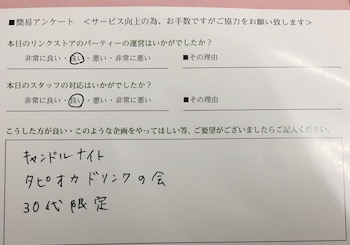 ■簡易アンケート　＜サービス向上の為、お手数ですがご協力をお願い致します＞
本日のリンクストアのパーティーの運営はいかがでしたか？
非常に良い・良い・悪い・非常に悪い　■その理由
本日のスタッフの対応はいかがでしたか？
非常に良い・良い・悪い・非常に悪い　■その理由
こうした方が良い・このような企画をやってほしい等、ご要望がございましたらご記入ください。
キャンドルナイト
タピオカドリンクの会
30代限定